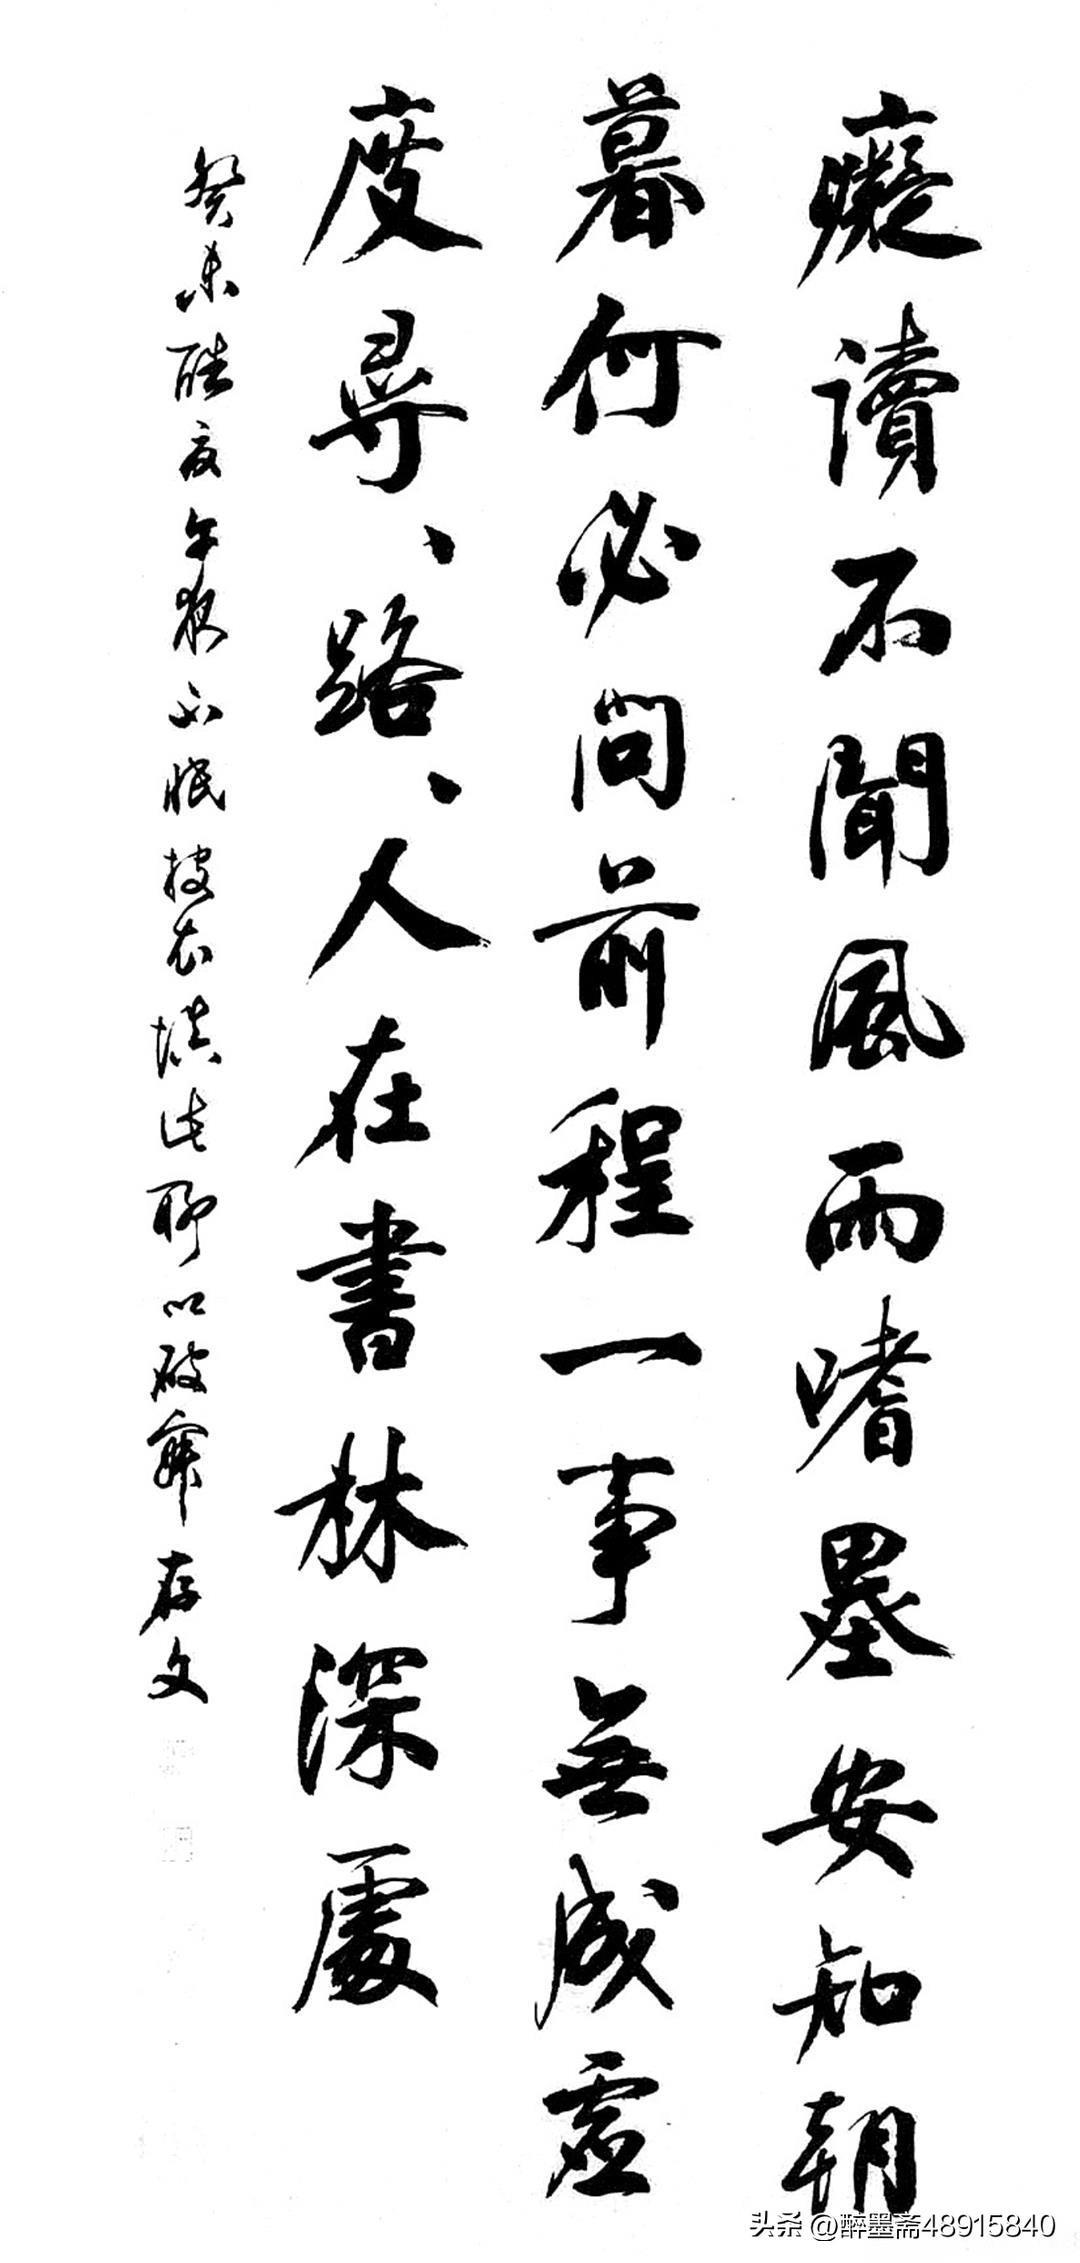 癡讀不聞風雨嗜墨安知朝
暮何必問前程一事無成虛
度尋、路、人在書林深處
癸未酷夏午夜不眠披衣填此聊以破寂 存文
头条 @醉墨斋48915840